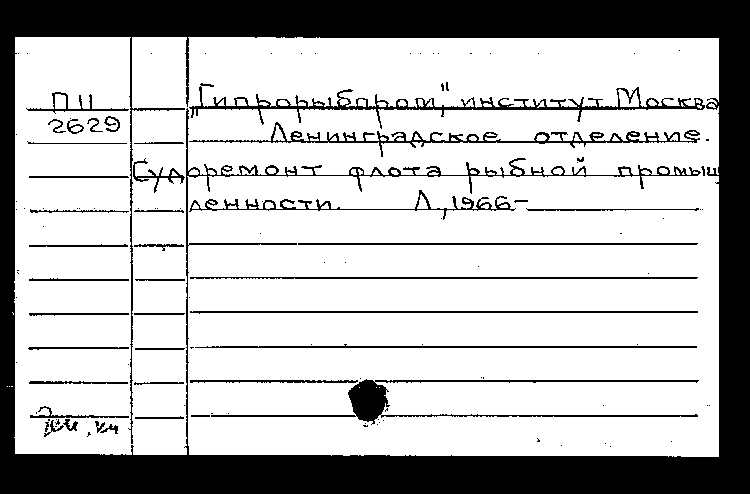 П II
2629
„Гипрорыбпром,“ институт Москва
Ленинградское отделение.
Судоремонт флота рыбной промыш
ленности. Л., 1966-